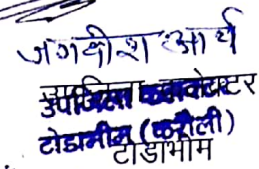 जगदीश आर्य
उपजिला कलेक्टर
टोडाभीम (करौली)
टोडाभीम